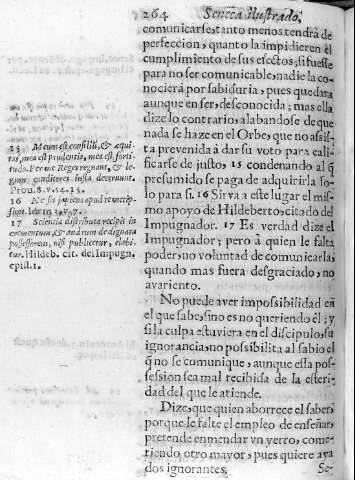 264 Seneca ilustrado,
comunicarse, tanto menos tendrà de
perfeccion, quanto la impidieren el
cumplimiento de sus efectos; si fuesse
para no ser comunicable, nadie la co-
nocierà por sabiduria, pues quedara
aunque en ser, desconocida; mas ella
dize lo contrario, alabandose de que
nada se haze en el Orbe, que no assis-
ta prevenida à dar su voto para cali-
ficarse de justo, 15 condenando al q̃
presumido se paga de adquirirla so-
lo para si. 16 Sirva a este lugar el mis-
mo apoyo de Hildeberto, citado del
Impugnador. 17 Es verdad dize el
Impugnador; pero à quien le falta
poder, no voluntad de comunicarla,
quando mas fuera desgraciado, no
avariento.
No puede aver impossibilidad en
el que sabe, sino es no queriendo èl; y
si la culpa estuviera en el discipulo, su
ignorancia, no possibilita al sabio el
q̃ no se comunique, aunque essa pos-
session sea mal recibida de la esteri-
dad del que le atiende.
Dize, que quien aborrece el saber,
porque le falte el empleo de enseñar,
pretende enmendar vn yerro, come-
tiendo otro mayor, pues quiere aya
dos ignorantes.
Se-
15 Meum est consiliũ, & æqui-
tas, mea est prudentia, mea est forti-
tudo. Per me Reges regnant, & le-
gum conditores iusta decernunt.
Prou. 8. v. 14. 15.
16 Ne sis sapiens apud te metip-
sum. Idem 3. v. 7.
17 Scientia distributa recipit in-
crementum, & auarum de dignata
possessorem, nisi publicetur, elabi-
tur. Hildeb. cit. del Impugn.
epist. 1.